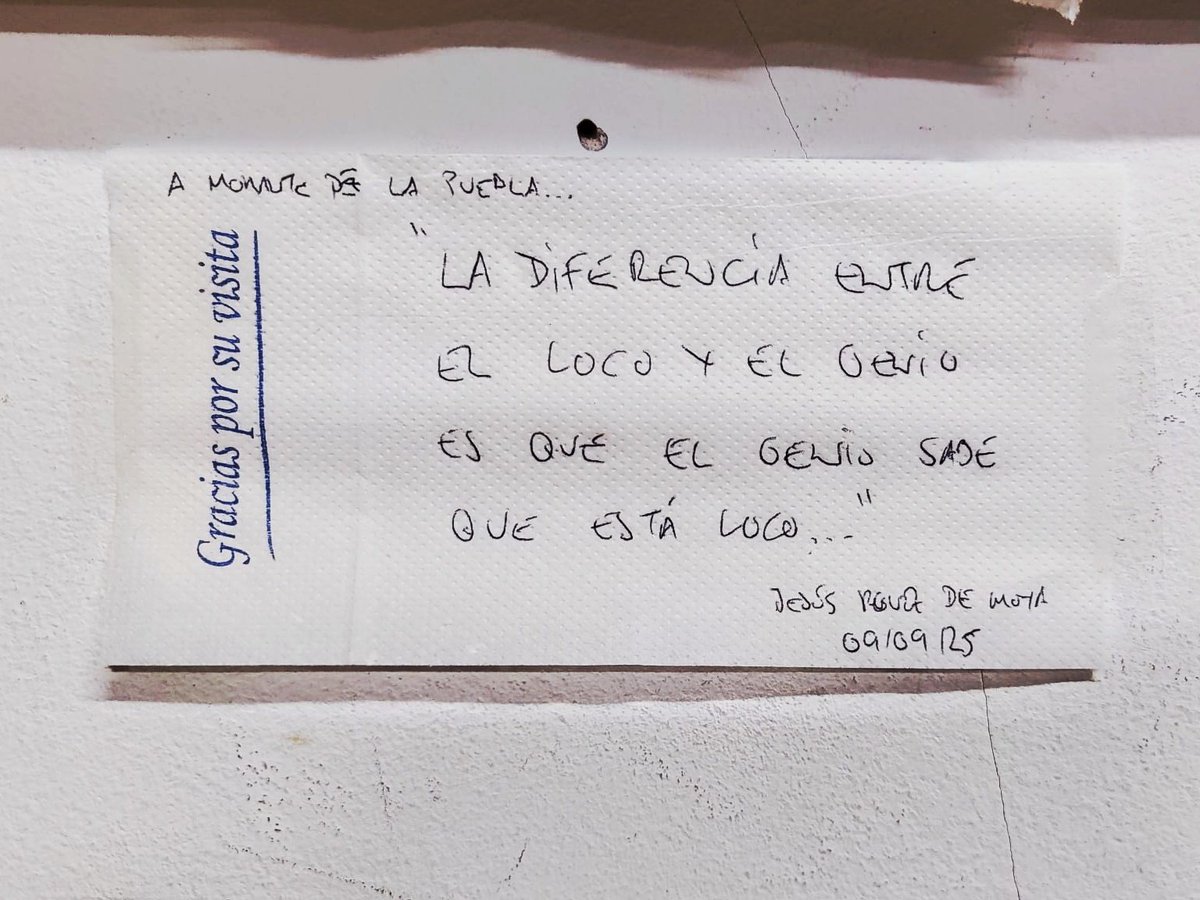 A MORANTE DE LA PUEBLA...
Gracias por su visita
"LA DIFERENCIA ENTRE
EL LOCO Y EL GENIO
ES QUE EL GENIO SABE
QUE ESTÁ LOCO..."
JESÚS RGUEZ DE MOYA
09/09/25